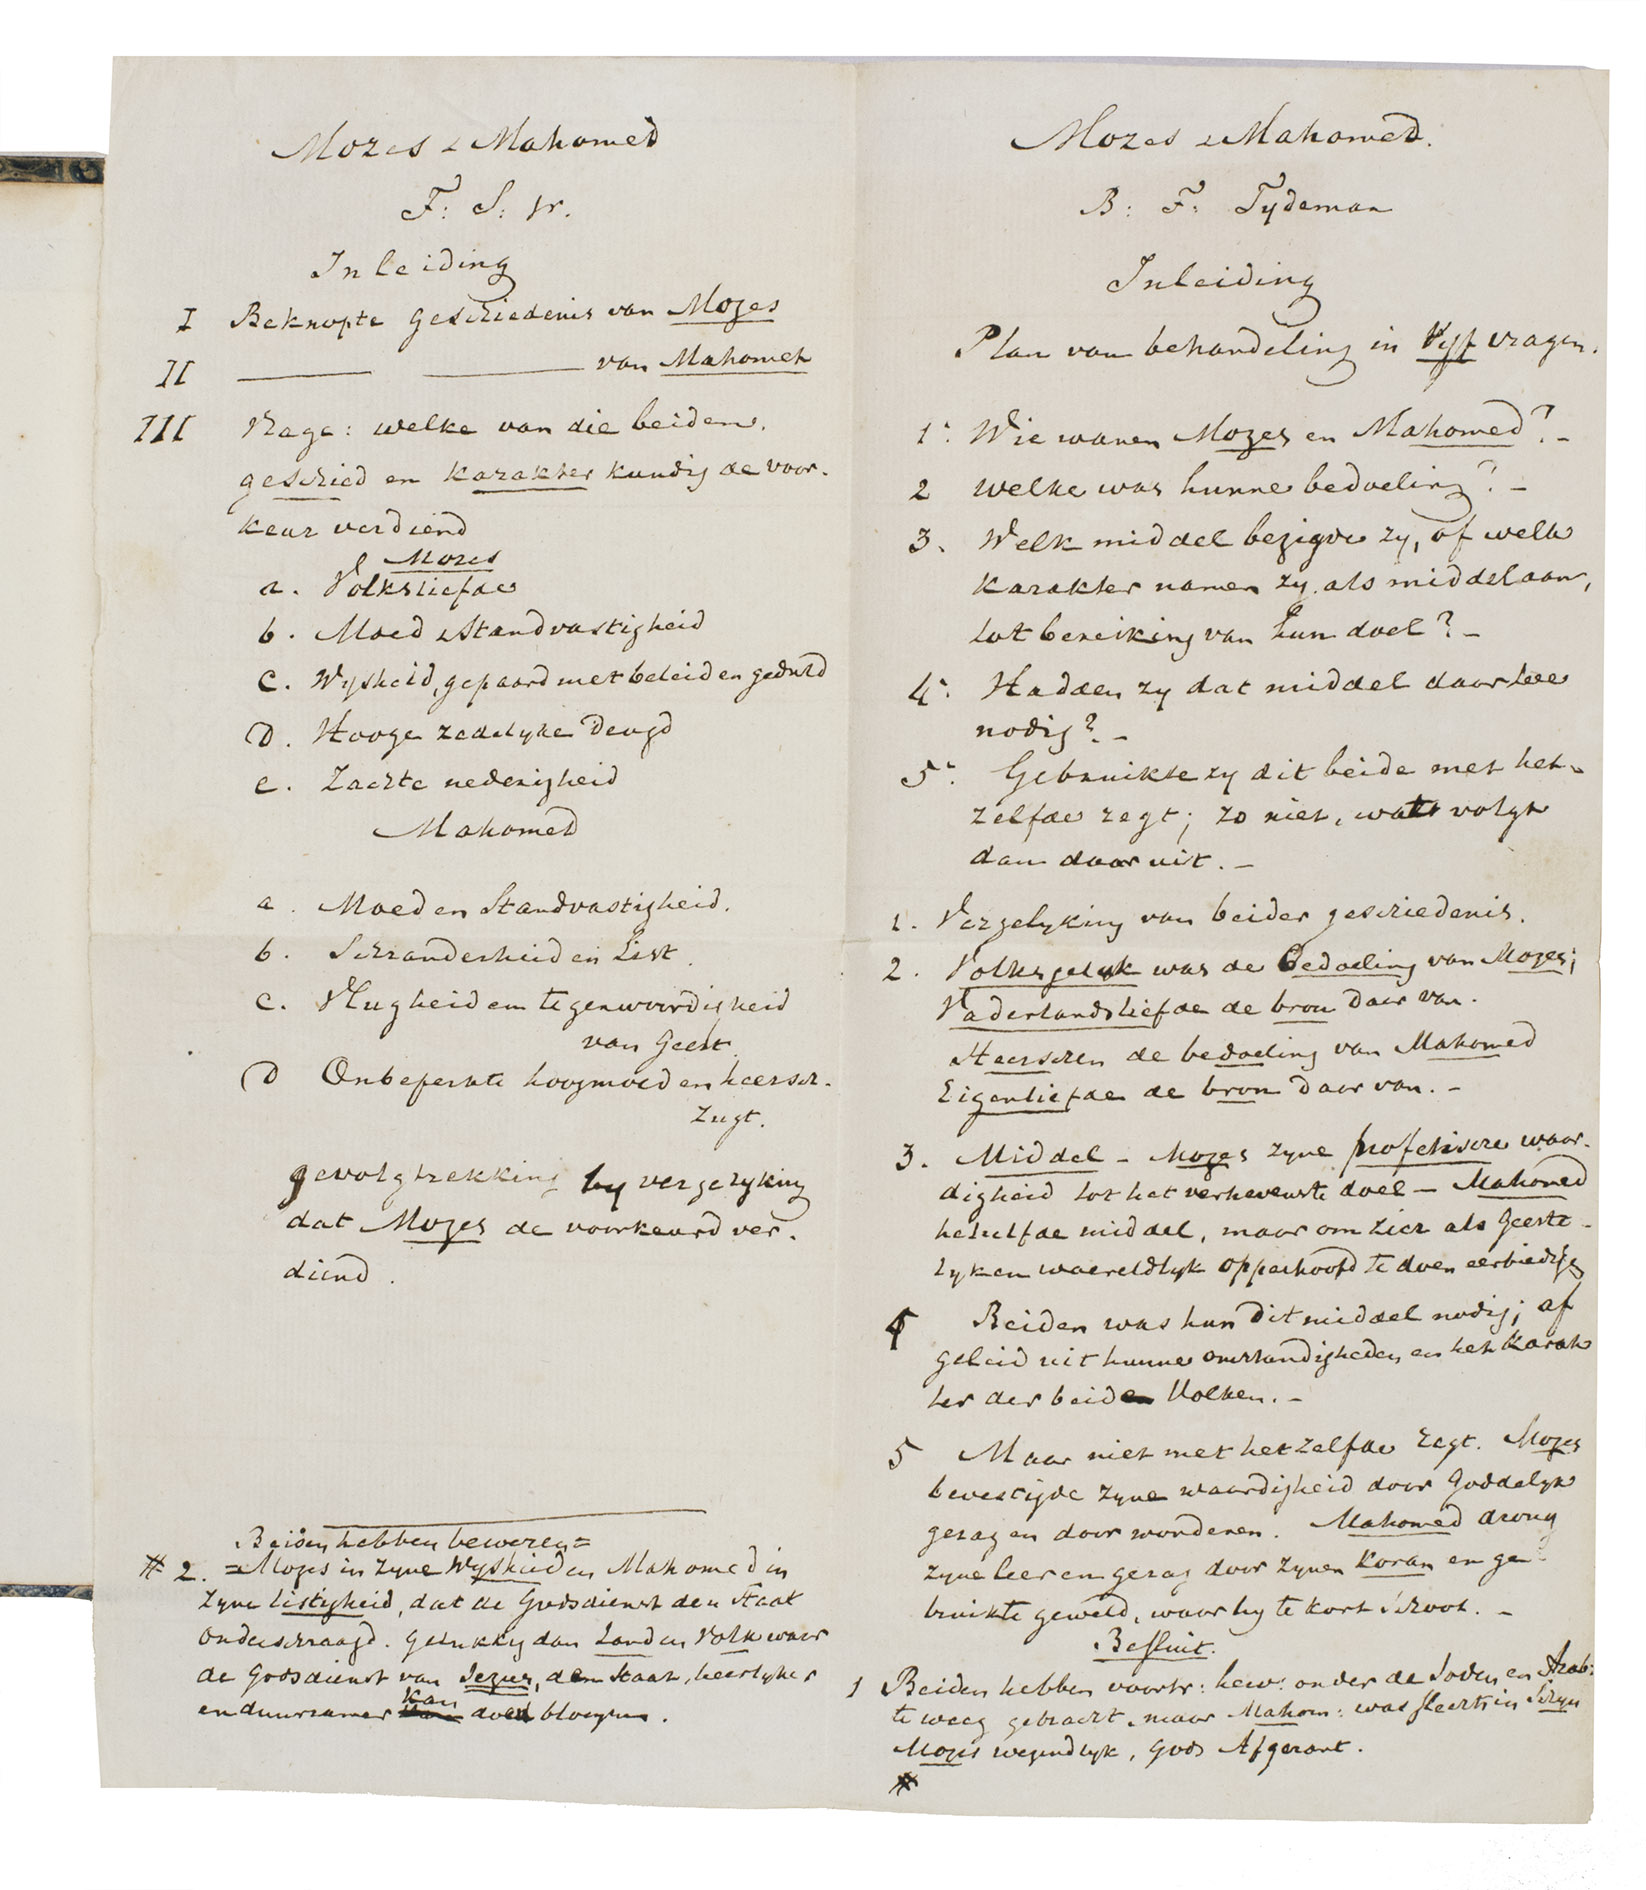 Mozes & Mahomed
F: S: jr.
Inleiding
I Beknopte geschiedenis van Mozes
II ——— ——— van Mahomet
III Vrage: welke van die beiden,
geschied en karakter kundig de voor-
keur verdiend
Mozes
a. Volksliefde
b. Moed & Standvastigheid
c. Wysheid, gepaard met beleid en geduld
D. Hooge zedelyke Deugd
e. Zachte nederigheid
Mahomed
a. Moed en Standvastigheid.
b. Schranderheid en List.
c. Vlugheid en tegenwoordigheid
van Geest.
D Onbeperkte hoogmoed en heersch-
zugt.
gevolgtrekking by vergelyking
dat Mozes de voorkeurd ver-
diend.
Beiden hebben bewezen=
# 2. =Mozes in zyne Wysheid en Mahomed in
zyne listigheid, dat de Godsdienst den Staat
onderschraagd. Gelukkig dan Land en Volk waar
de Godsdienst van Jezus, den Staat, heerlyker
en duurzamer kan doen bloeyen.
Mozes & Mahomed.
B: F: Tydeman
Inleiding
Plan van behandeling in Vyf vragen.
1. Wie waren Mozes en Mahomed? -
2 welke was hunne bedoeling? -
3. Welk middel bezigde zy, of welk
karakter namen zy als middelaar,
tot bereiking van hun doel? -
4. Hadden zy dat middel daar toe
nodig? -
5. Gebruikte zy dit beide met het-
zelfde regt; zo niet, wat volgt
dan daar uit. -
1. Vergelyking van beider geschiedenis.
2. Volksgeluk was de Bedoeling van Mozes;
Vaderlandsliefde de bron daar van.
Heerschen de bedoeling van Mahomed
Eigenliefde de bron daar van. -
3. Middel - Mozes zyne profetische waar-
digheid tot het verhevenste doel - Mahomed
hetzelfde middel, maar om zich als Geeste-
lyk en waereldlyk opperhoofd te doen eerbiedigen
4 Beiden was hun dit middel nodig; af
geleid uit hunne omstandigheden en het karak
ter der beiden Volken. -
5 Maar niet met het zelfde regt. Mozes
bevestigde zyne waardigheid door Goddelyk
gezag en door wonderen. Mahomed drong
zyne leer en gezag door zynen Koran en ge-
bruikte geweld, waar hy te kort schoot. -
Besluit.
1 Beiden hebben voortr: hew: onder de Joden en Arab:
te weeg gebracht, maar Mahom: was slechts in Schyn
Mozes wezendlyk, Gods Afgezant.
#